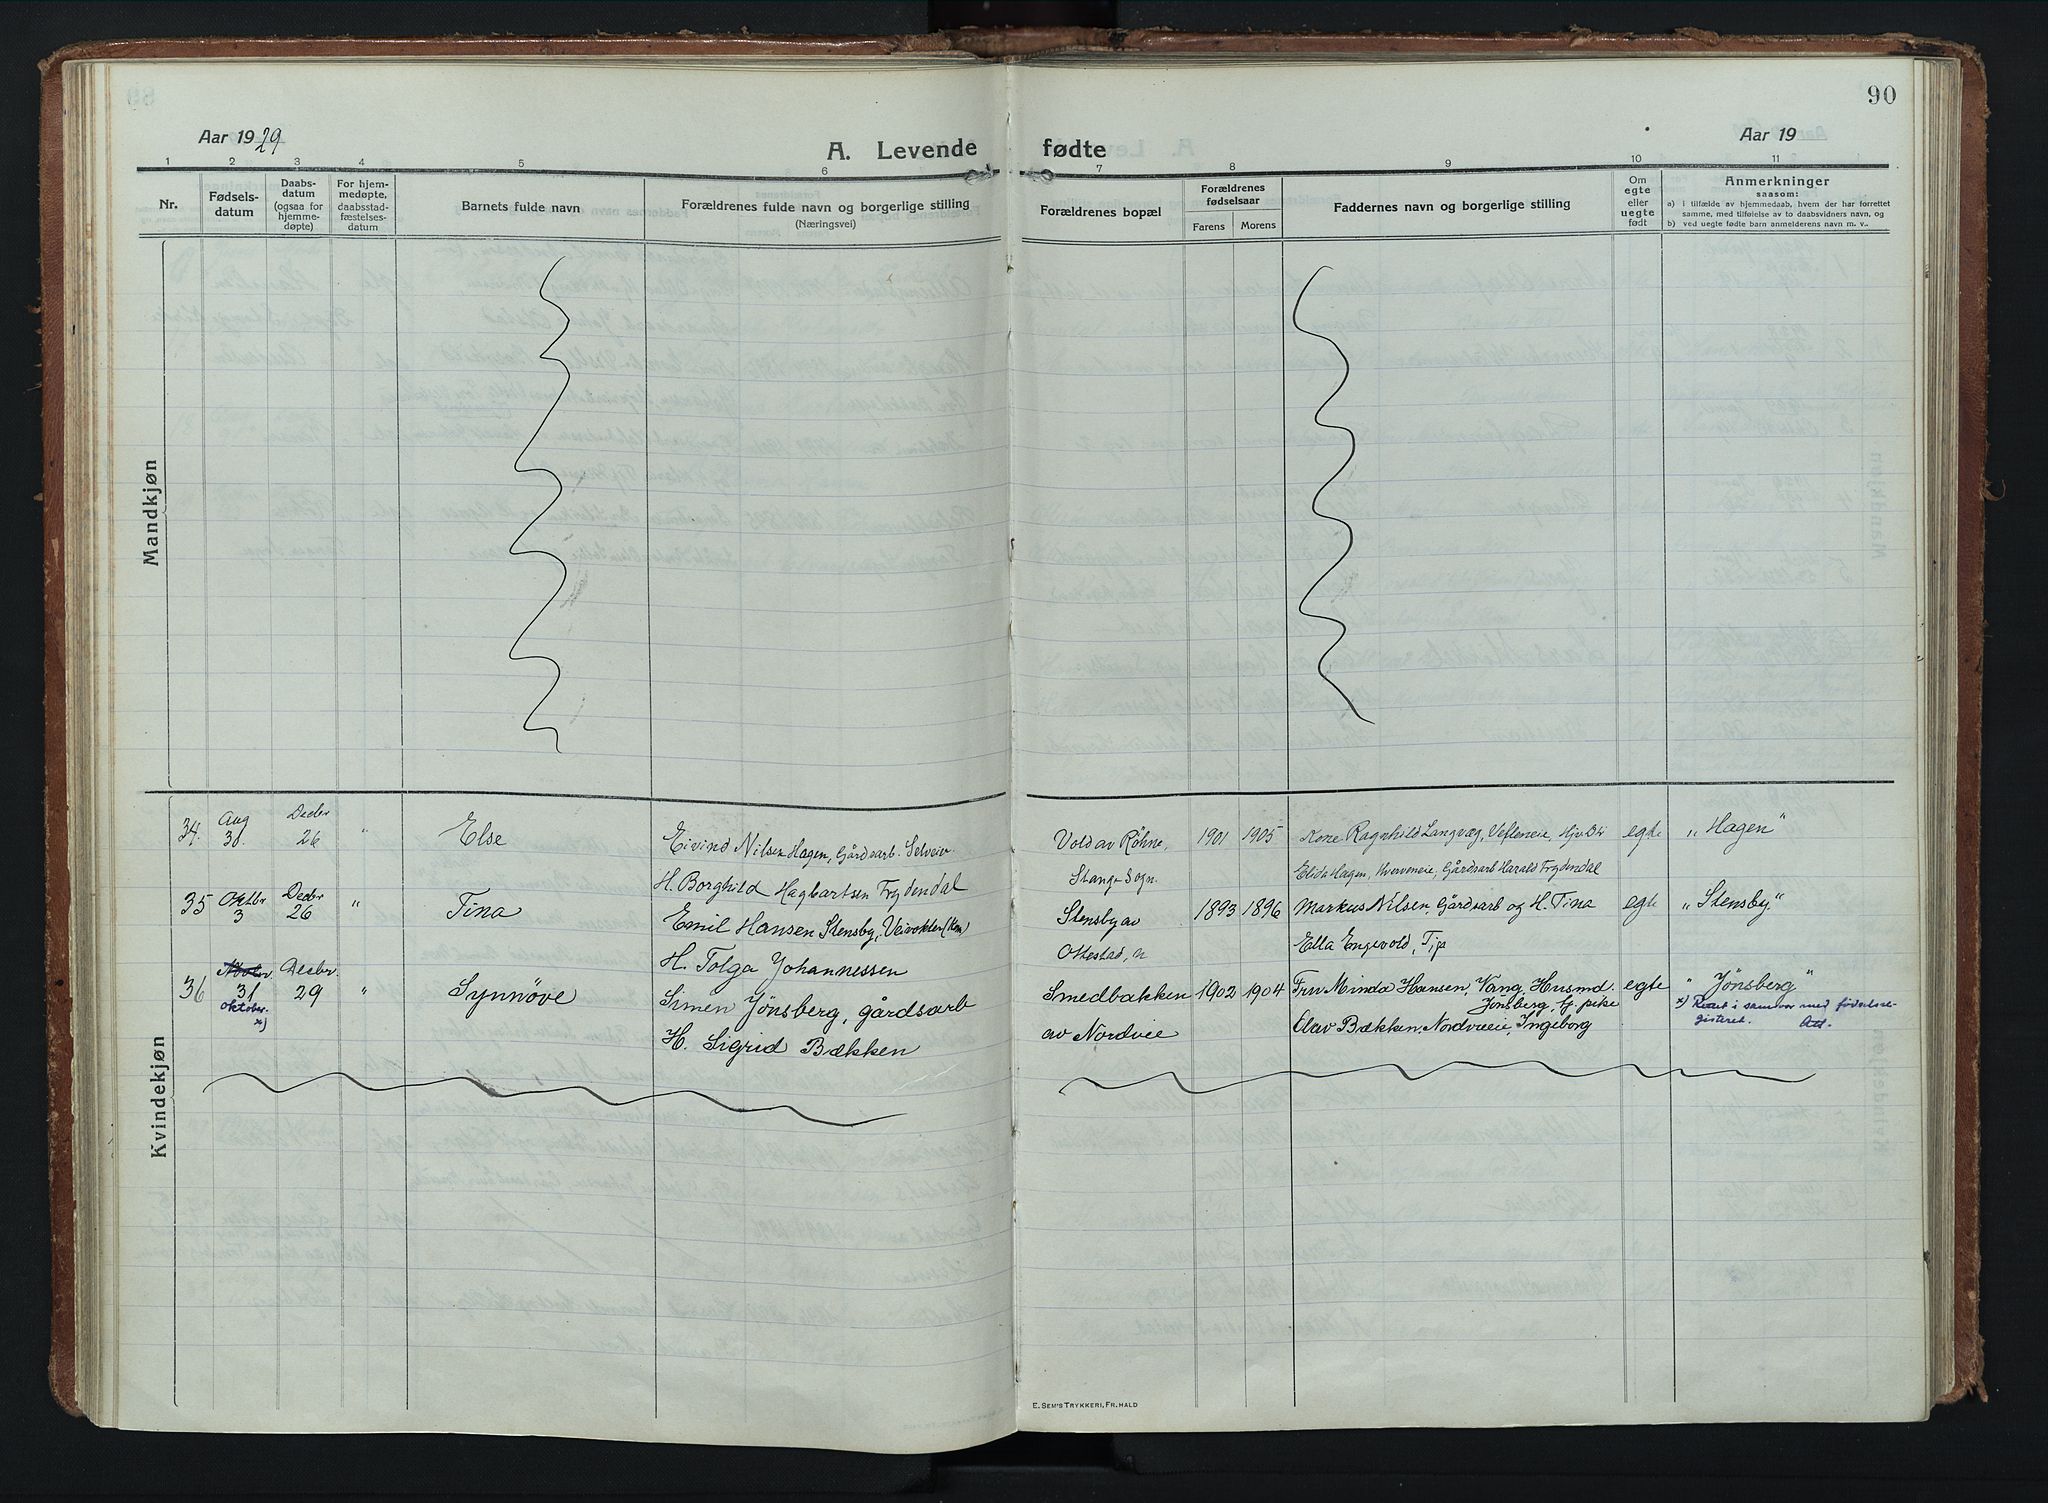 90
Aar 1929
A. Levende fødte
Aar 19
1 2 3 4 5 6 7 8 9 10 11
Nr.
Fødsels-
datum
Daabs-
datum
(ogsaa for
hjemme-
døpte)
For hjem-
medøpte,
daabsstad-
fæstelses-
datum
Barnets fulde navn
Forældrenes fulde navn og borgerlige stilling
(Næringsvei)
Forældrenes bopæl
Forældrenes
fødselsaar
Farens Morens
Faddernes navn og borgerlige stilling
Om
egte
eller
uegte
født
Anmerkninger
saasom:
a) i tilfælde av hjemmedaab, hvem der har forrettet
samme, med tilføielse av to daabsvidners navn, og
b) ved uegte fødte barn anmelderens navn m. v..
Mandkjøn
Kvindekjøn
34. Aug 30. Decbr 26 " Else
Eivind Nilsen Hagen, Gårdsarb. Selveier
H. Borghild Hagbartsen Frydendal
Vold av Røhne,
Stange Sogn.
1901 1905
Kone Ragnhild Langvæg, Vefleneie,
Elida Hagen, Kverveneie, Gårdsarb Harald Frydendal
egte "Hagen"
35 Oktbr 3 Decbr 26 " Tina
Emil Hansen Stensby, Veivokter
H. Tolga Johannessen
Stensby av
Ottestad, n
1893 1896
Markus Nilsen, Gårdsarb og H. Tina
Ella Engevold, Tip
egte "Stensby"
36 Novbr 31 Oktober. x) Decbr. 29 " Synnøve
Simen Jønsberg, gårdsarb
H. Sigrid Bækken
Smedbakken
av Nordvie
1902 1904
Fru Minda Hansen, Vang, Husmd.
Jønsberg, G pike
Olav Bækken, Nordvieeie, Ingeborg
egte "Jønsberg"
x) Rettet i samsvar med fødselsre-
gisteret.
E. SEM'S TRYKKERI, FR.HALD